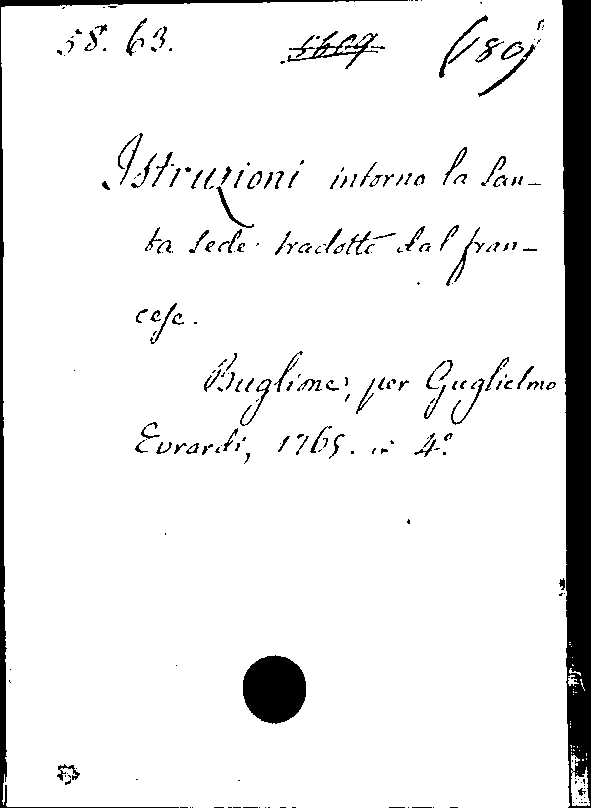 58. 63. 5609 (180)
Istruzioni intorno la San-
ta Sede. tradotte dal fran-
cese.
Buglione, per Guglielmo
Evrardi, 1765. in 4.º